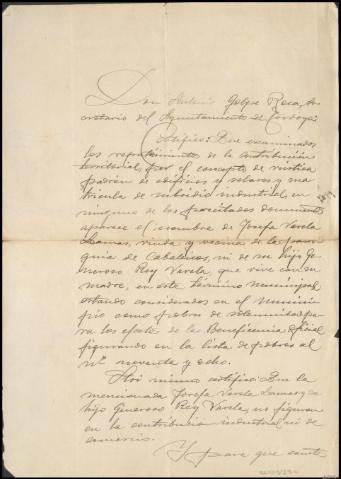 Don Antonio Golpe Roca, Se-
cretario del Ayuntamiento de
Certifico: Que examinados
los repartimientos de la contribución
territorial, por el concepto de rústica
padrón de edificios y solares y ma-
trícula de subsidio industrial, en
ninguno de los precitados documentos
aparece el nombre de Josefa Varela
Lamas, viuda y vecina de la parro-
quia de ni de su hijo Ge-
neroso Rey Varela, que vive con su
madre, en este término municipal
estando considerados en el munici-
pio como pobres de solemnidad pa-
ra los efectos de la Beneficencia oficial
figurando en la lista de pobres al
nº noventa y ocho.
Así mismo certifico: Que la
mencionada Josefa Varela Lamas y su
hijo Generoso Rey Varela, no figuran
en la contribución industrial ni de
comercio.
Y para que conste